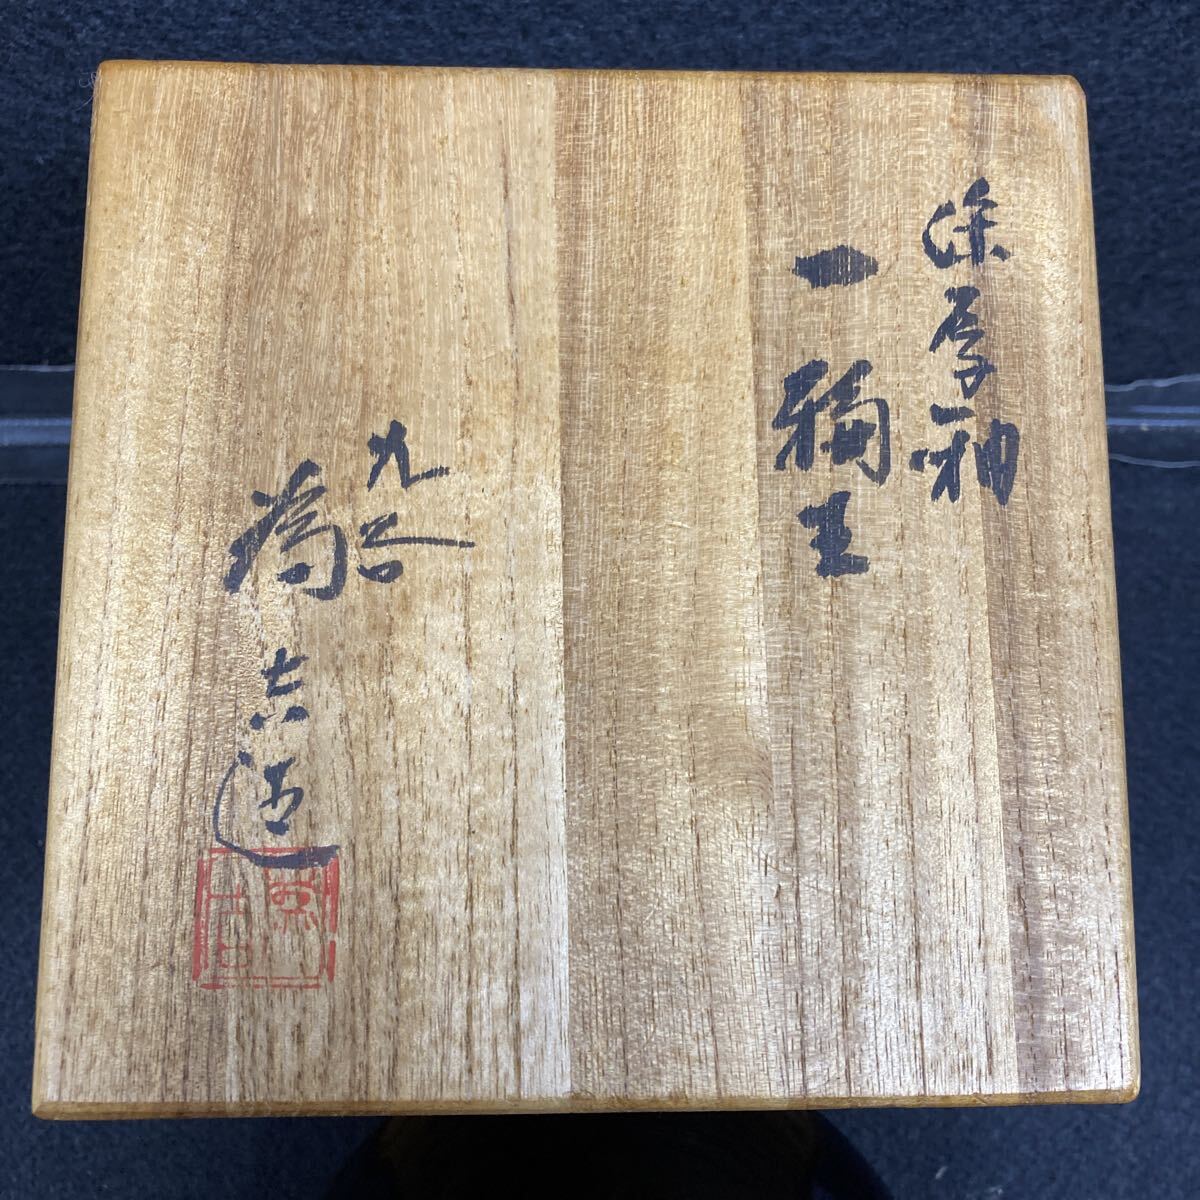 深厚釉
一輪生
九谷
為吉造